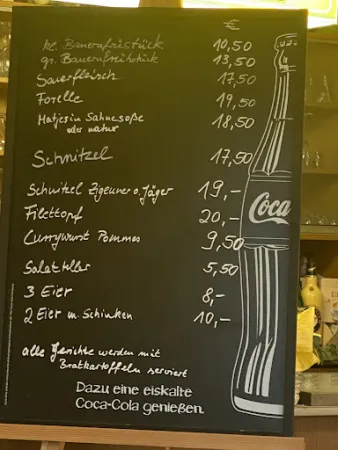 €
kl. Bauernfrüstück 10,50
gr. Bauernfrühstück 13,50
Sauerfleisch 17,50
Forelle 19,50
Matjes in Sahnesoße 18,50
oder natur
Schnitzel 17,50
Schnitzel Zigeuner o. Jäger 19,-
Filettopf 20,-
Currywurst Pommes 9,50
Salatteller 5,50
3 Eier 8,-
2 Eier m. Schinken 10,-
alle Gerichte werden mit
Bratkartoffeln serviert
Coca
Dazu eine eiskalte
Coca-Cola genießen.